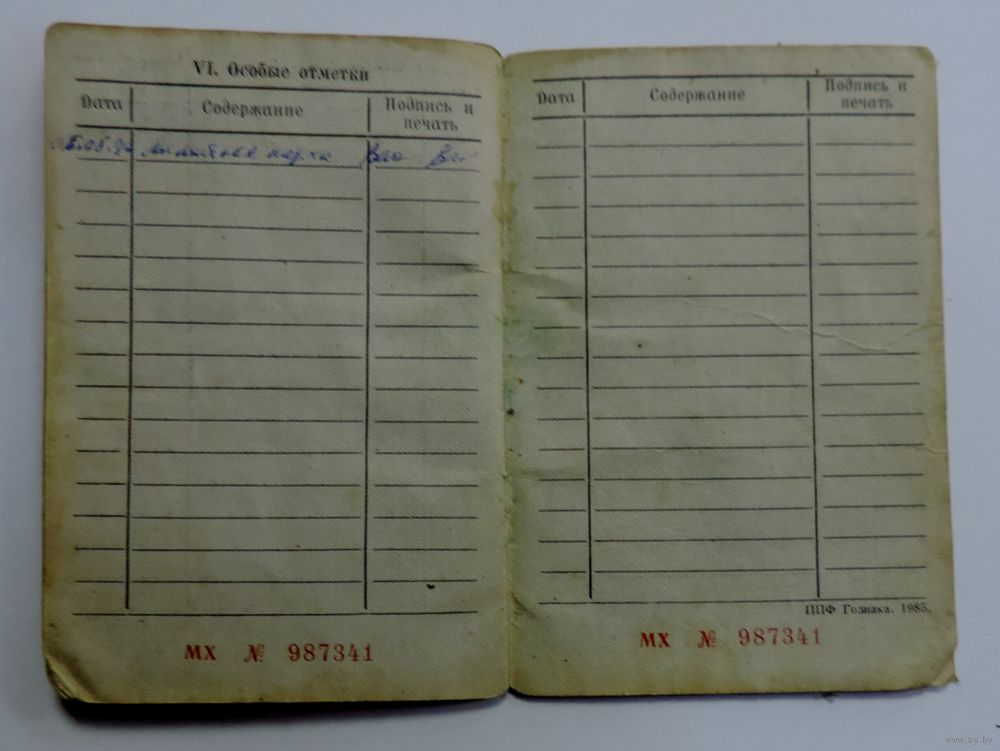 VI. Особые отметки
Дата Содержание Подпись и печать
МХ № 987341
Дата Содержание Подпись и печать
ППФ Гознака. 1985.
МХ № 987341
www.ay.by